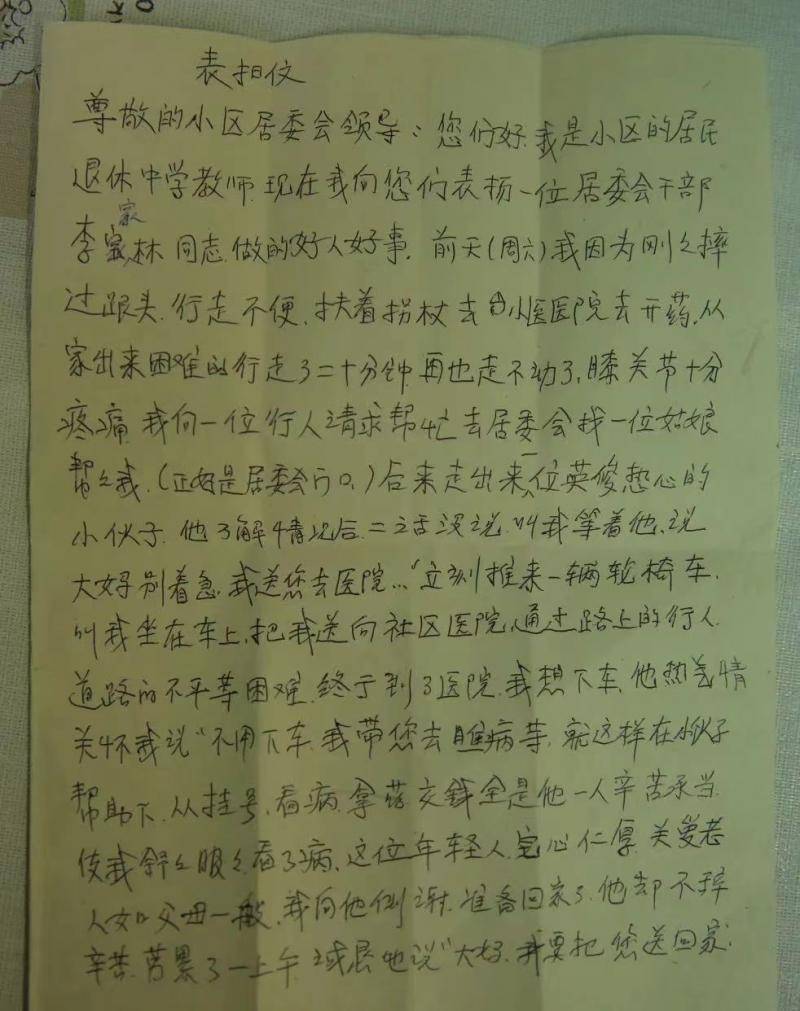 表扬仪
尊敬的小区居委会领导：您们好.我是小区的居民
退休中学教师.现在我向您们表扬一位居委会干部
家
李家林同志.做的好人好事.前天(周六)我因为刚々摔
过跟头.行走不便.扶着拐杖去由小医医院去开药.从
家出来困难的行走了二十分钟.再也走不动了,膝关节十分
疼痛.我向一位行人请求帮忙去居委会找一位姑娘
帮々我.(正好是居委会门口.)后来走出来一位英俊热心的
小伙子.他了解情况后.二话没说.叫我等着他.说
大好别着急.我送您去医院…"立刻推来一辆轮椅车.
叫我坐在车上.把我送向社区医院,通过路上的行人.
道路的不平等困难.终于到了医院.我想下车.他热情
关怀我说"不用下车.我带您去瞧病等.就这样在小伙子
帮助下.从挂号.看病.拿药.交钱全是他一人辛苦承当.
使我舒々服々看了病.这位年轻人.心仁厚.关爱老
人如父母一般.我向他谢.准备回家了.他却不辞
辛苦.劳累了一上午.诚恳地说"大好.我要把您送回家.